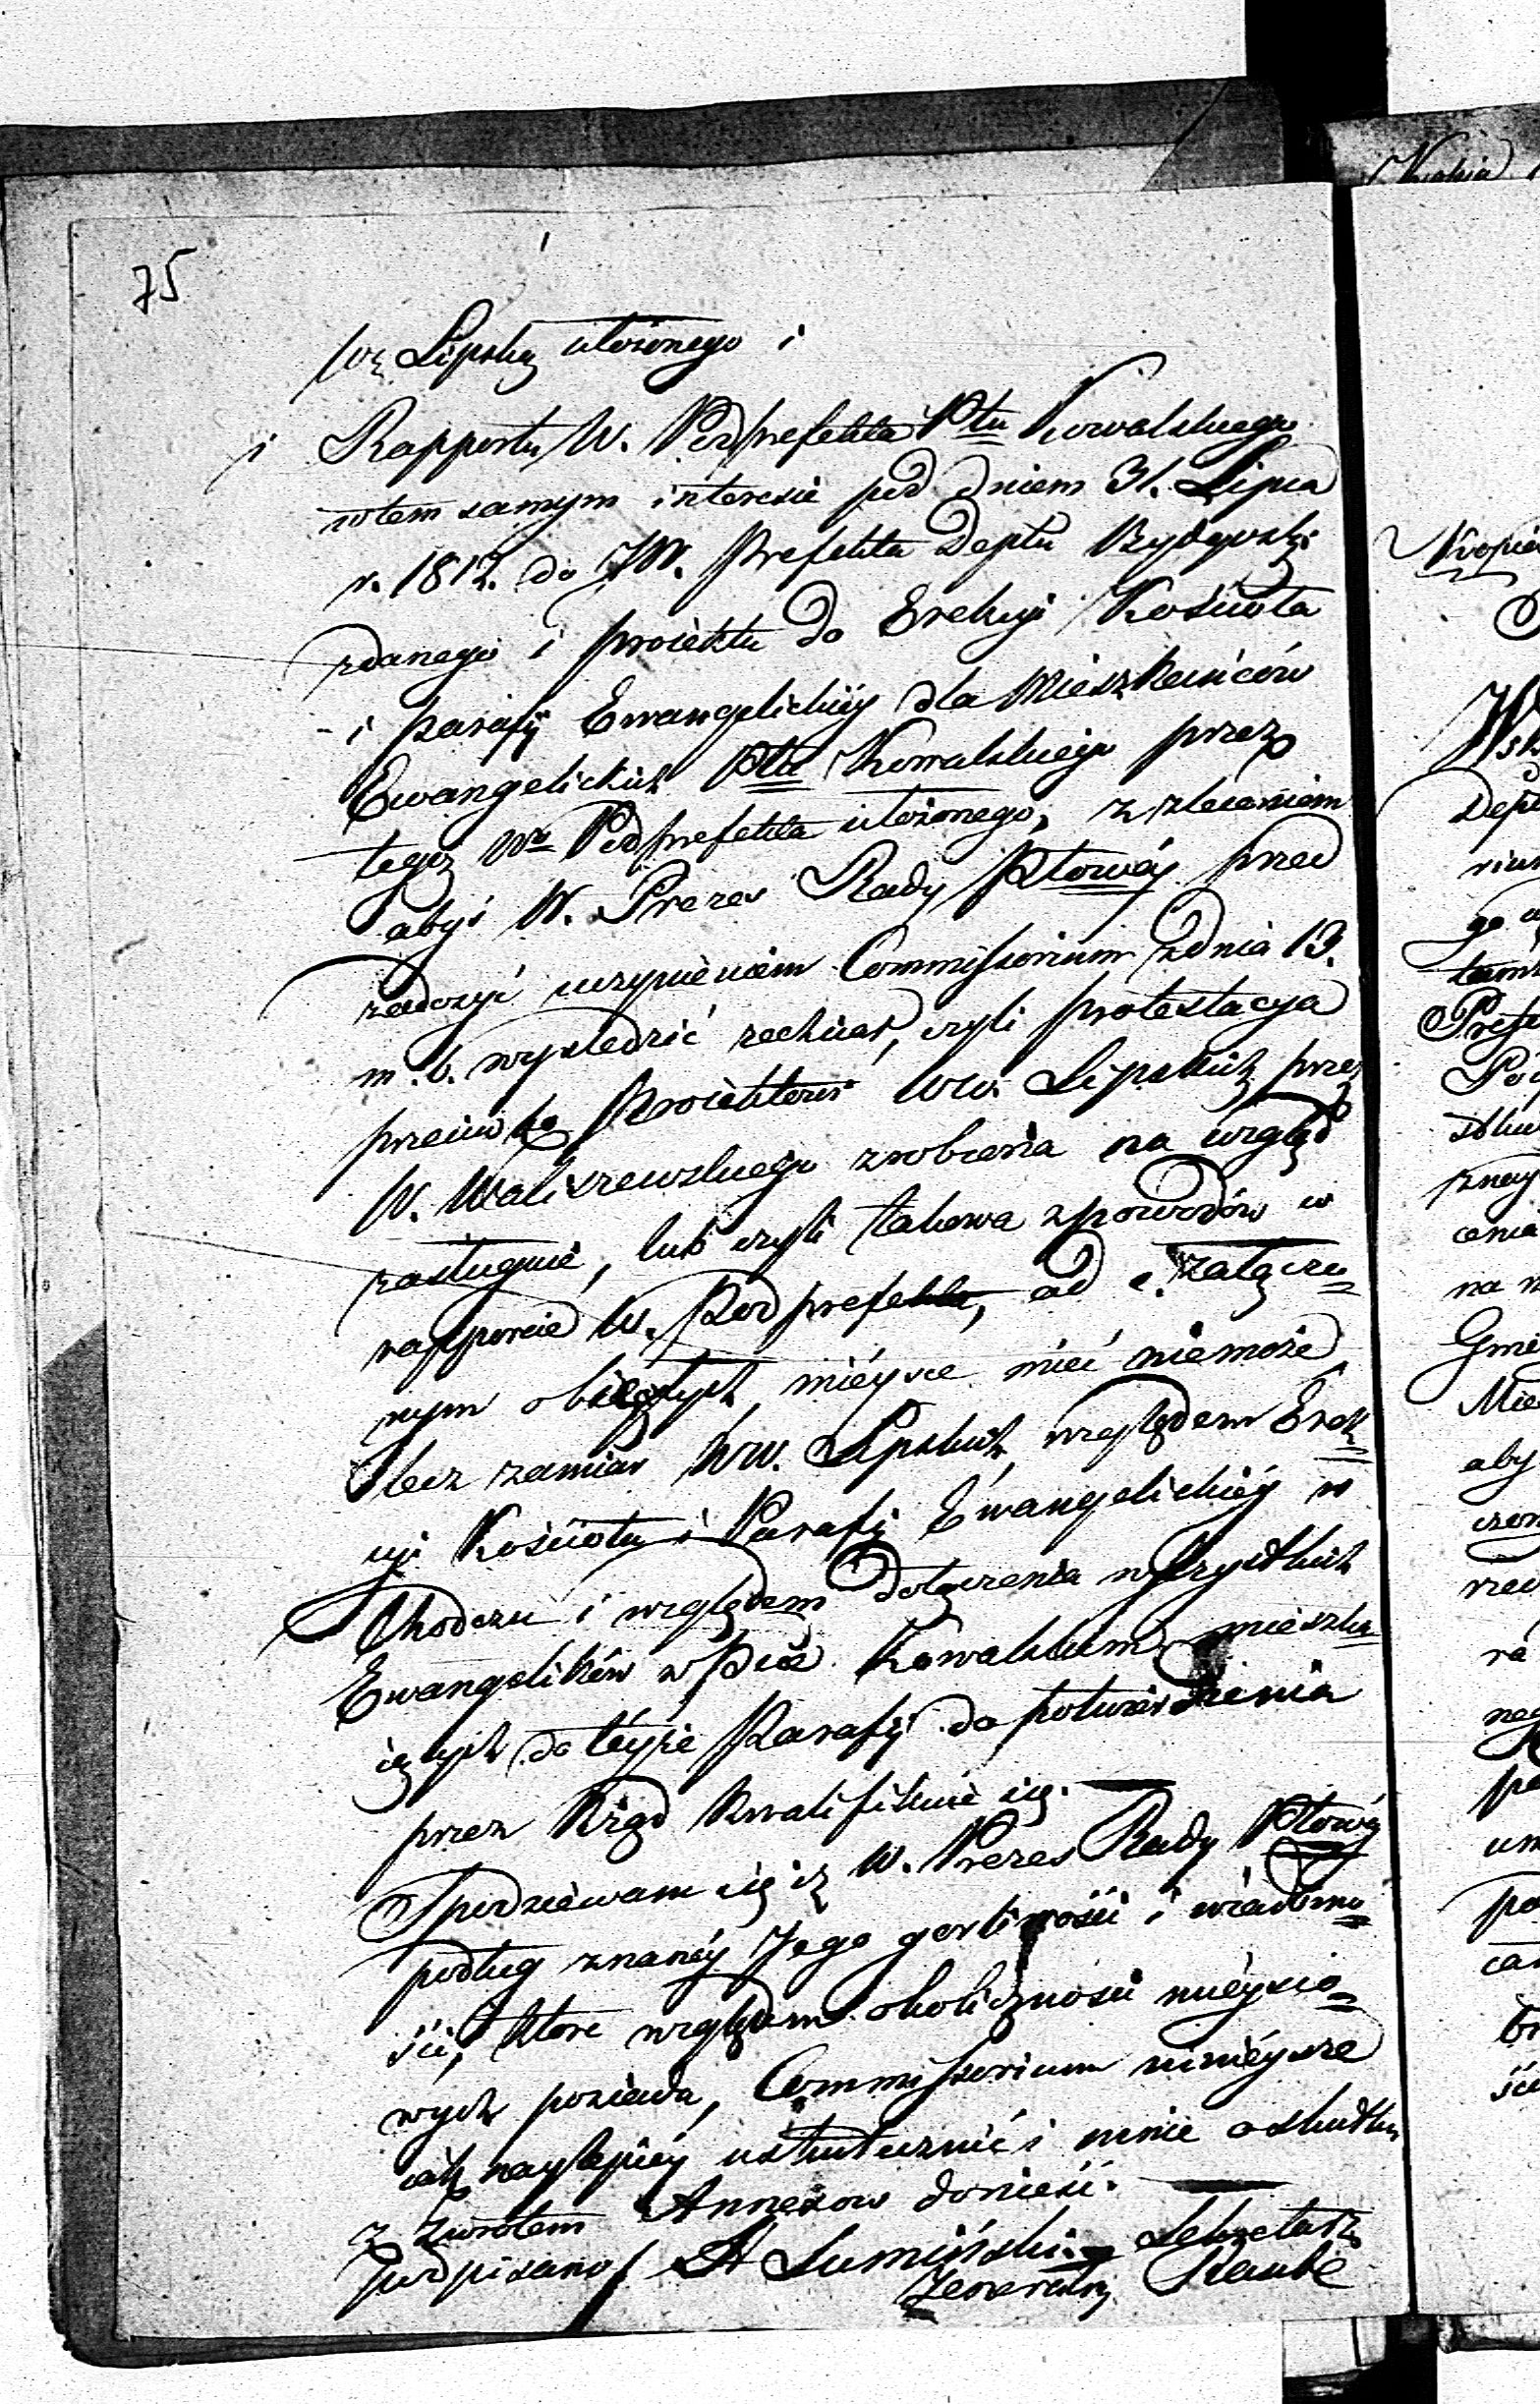 75
Wę Lipską ułożonego i
i Rapportu W. Podprefekta Ptu Kowalskiego
wtem samym interesie pod dniem 31. Lipca
r. 1812. do JW. Prefekta Deptu Bydgoski:
zdanego i proiektu do Erekcyi Kościoła
i parafij Ewangelickiéy dla Mieszkańców
Ewangelickich Ptu Kowalskiego przez
tegoż Wo Podprefekta ułożonego, z zleceniem
abyś W. Prezes Rady Ptowéy przed
zadosyć uczynieniem Commissorium z dnia 13.
m. b. wysledzić zechciał, czyli protestacya
przeciwko Proiektowi WW. Lipskich przez
W. Waliszewskiego zrobiona na wzgląd
zasługuie, lub czyli takowa z powodów w
rapporcie W. Podprefekta, ad e. załączo
nym obiętych mieysce mieć niemoże
lecz zamiar WW. Lipskich względem Erek
cyi Kościoła i Parafij Ewangelickiéy w
Chodczu i względem dołączenia wszystkich
Ewangelików w Pcie Kowalskim mieszka
iących do téyże Parafij do potwierdzenia
przez Rząd kwalifikuie się.
Spodziewam się iż W. Prezes Rady Ptowéy
podług znanéy Jego gorliwości i wiadomo
ści, które względem okoliczności mieysco
wych posiada, Commissorium ninieysze
iak naylepiéy uskutecznić i mnie o skutku
z zwrotem Annexow donieść.
podpisano/ A Sumiński. Sekretarz
Jeneralny Raube
Kopia